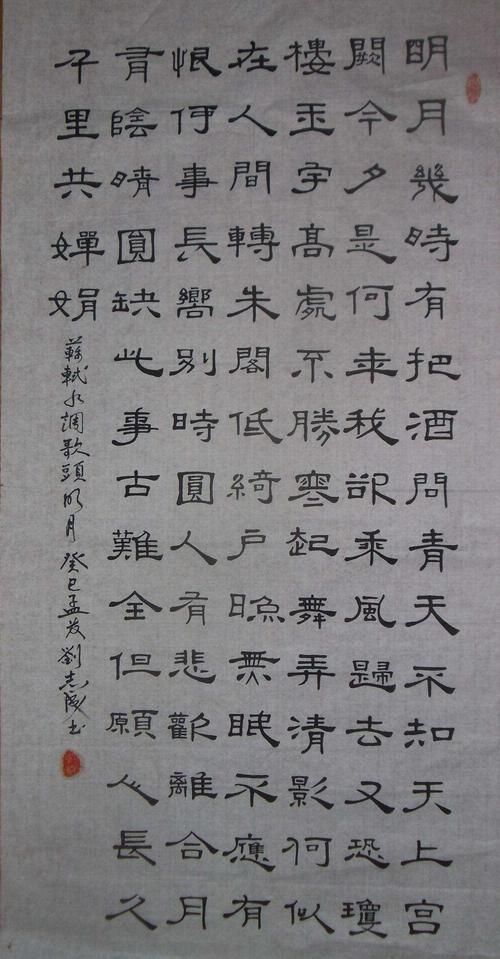 明月幾時有把酒問青天不知天上宮
闕今夕是何年我欲乘風歸去又恐瓊
樓玉宇高處不勝寒起舞弄清影何似
在人間轉朱閣低綺戶照無眠不應有
恨何事長嚮別時圓人有悲歡離合月
有陰晴圓缺此事古難全但願人長久
千里共嬋娟
蘇軾水調歌頭明月 癸巳孟夏劉志成書